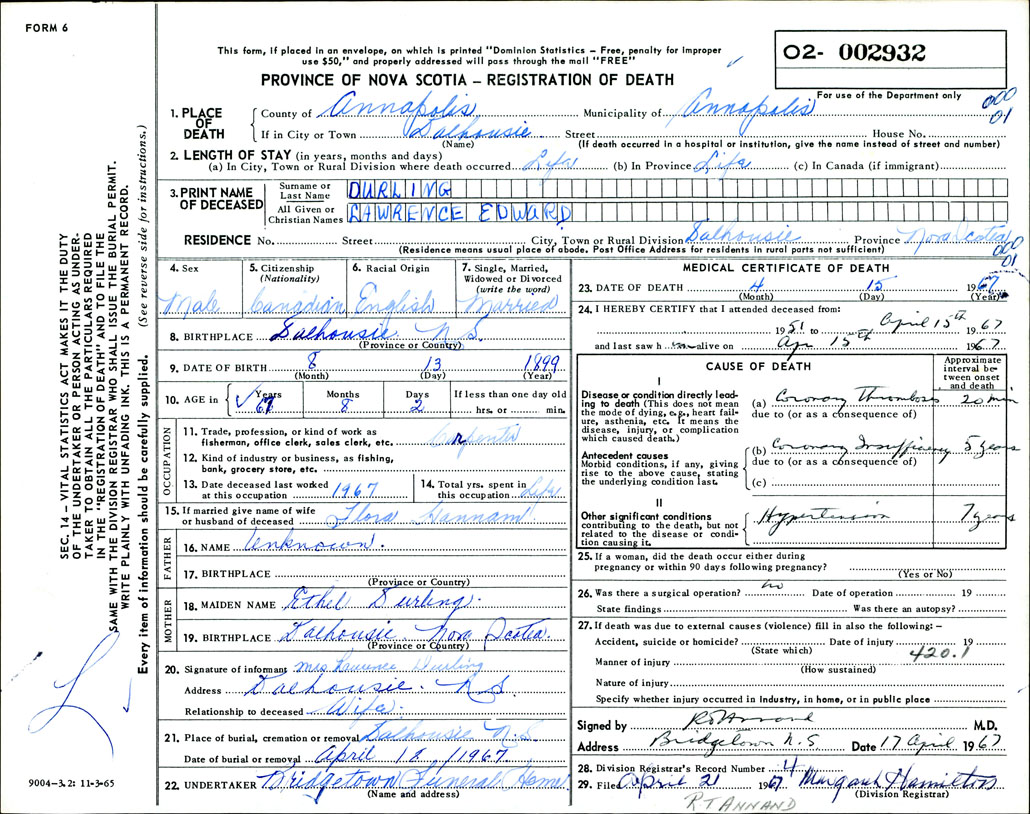 FORM 6
This form, if placed in an envelope, on which is printed "Dominion Statistics – Free, penalty for improper
use $50," and properly addressed will pass through the mail "FREE"
PROVINCE OF NOVA SCOTIA – REGISTRATION OF DEATH
O2- 002932
For use of the Department only
000
01
1. PLACE OF DEATH
County of Annapolis Municipality of Annapolis
If in City or Town Dalhousie Street House No.
(Name) (If death occurred in a hospital or institution, give the name instead of street and number)
2. LENGTH OF STAY (in years, months and days)
(a) In City, Town or Rural Division where death occurred Life (b) In Province Life (c) In Canada (if immigrant)
3. PRINT NAME OF DECEASED
Surname or Last Name DURLING
All Given or Christian Names LAWRENCE EDWARD
RESIDENCE No. Street City, Town or Rural Division Dalhousie Province Nova Scotia
(Residence means usual place of abode. Post Office Address for residents in rural parts not sufficient)
000
01
4. Sex
Male
5. Citizenship
(Nationality)
Canadian
6. Racial Origin
English
7. Single, Married,
Widowed or Divorced
(write the word)
Married
8. BIRTHPLACE Dalhousie N.S.
(Province or Country)
9. DATE OF BIRTH 8 13 1899
(Month) (Day) (Year)
10. AGE in
Years Months Days If less than one day old
67 8 2 hrs. or min.
OCCUPATION
11. Trade, profession, or kind of work as
fisherman, office clerk, sales clerk, etc. Carpenter
12. Kind of industry or business, as fishing,
bank, grocery store, etc.
13. Date deceased last worked
at this occupation 1967
14. Total yrs. spent in
this occupation Life
15. If married give name of wife
or husband of deceased Flora Hannam
FATHER
16. NAME Unknown.
17. BIRTHPLACE
(Province or Country)
MOTHER
18. MAIDEN NAME Ethel Durling.
19. BIRTHPLACE Dalhousie Nova Scotia.
(Province or Country)
20. Signature of informant Mrs Lawrence Durling
Address Dalhousie. N.S.
Relationship to deceased Wife.
21. Place of burial, cremation or removal Dalhousie N.S.
Date of burial or removal April 18, 1967.
22. UNDERTAKER Bridgetown Funeral Home
(Name and address)
MEDICAL CERTIFICATE OF DEATH
23. DATE OF DEATH 4 15 1967
(Month) (Day) (Year)
24. I HEREBY CERTIFY that I attended deceased from:
1951 to April 15th 1967
and last saw h im alive on Apr 15th 1967
CAUSE OF DEATH
Approximate
interval be-
tween onset
and death
I
Disease or condition directly lead-
ing to death (This does not mean
the mode of dying, e.g., heart fail-
ure, asthenia, etc. It means the
disease, injury, or complication
which caused death.)
(a) Coronary Thrombosis 20 min
due to (or as a consequence of)
Antecedent causes
Morbid conditions, if any, giving
rise to the above cause, stating
the underlying condition last.
(b) Coronary Insufficiency 5 years
due to (or as a consequence of)
(c)
II
Other significant conditions
contributing to the death, but not
related to the disease or condi-
tion causing it.
Hypertension 7 years
25. If a woman, did the death occur either during
pregnancy or within 90 days following pregnancy?
(Yes or No)
26. Was there a surgical operation? no Date of operation 19
State findings Was there an autopsy?
27. If death was due to external causes (violence) fill in also the following: –
Accident, suicide or homicide? Date of injury 19
(State which) 420.1
Manner of injury
(How sustained)
Nature of injury
Specify whether injury occurred in industry, in home, or in public place
Signed by RT Annand M.D.
Address Bridgetown N.S Date 17 April 1967
28. Division Registrar's Record Number 4
29. Filed April 21 1967 Margaret Hamilton
(Division Registrar)
RT ANNAND
SEC. 14 – VITAL STATISTICS ACT MAKES IT THE DUTY
OF THE UNDERTAKER OR PERSON ACTING AS UNDER-
TAKER TO OBTAIN ALL THE PARTICULARS REQUIRED
IN THE "REGISTRATION OF DEATH" AND TO FILE THE
SAME WITH THE DIVISION REGISTRAR WHO SHALL ISSUE THE BURIAL PERMIT.
WRITE PLAINLY WITH UNFADING INK. THIS IS A PERMANENT RECORD.
Every item of information should be carefully supplied. (See reverse side for instructions.)
9004–3.2: 11-3-65